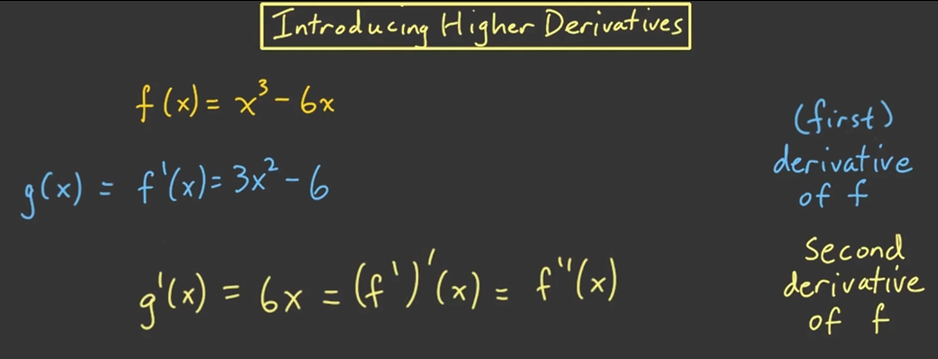 Introducing Higher Derivatives
f(x) = x³ - 6x
g(x) = f'(x) = 3x² - 6
(first)
derivative
of f
g'(x) = 6x = (f')'(x) = f''(x)
Second
derivative
of f